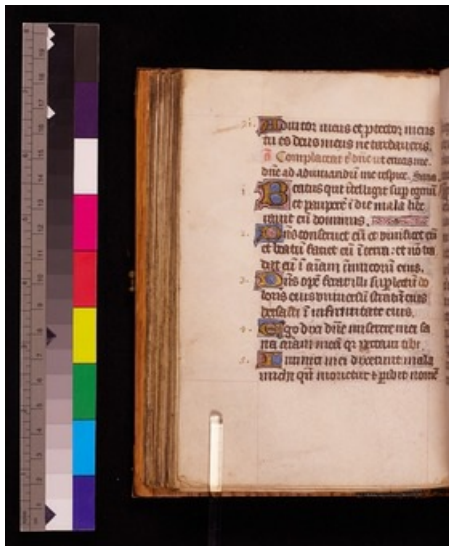 Adiutor meus et ptector meus
tu es deus meus ne tardaueris.
Complaceat t dne ut eruas me.
dne ad adiuuandu me respice.
Beatus qui itelligit sup egenu
et paupere i die mala libe
rauit eu dominus.
Dns conseruet eu et uiuificet eu
et beatu faciat eu i terra: et no tra
dat eu i aiam inimicoru eius.
Dns ope ferat illi sup lectu do
loris eius uniuersu stratu eius
uersasti i infirmitate eius.
Ego dixi dne miserere mei sa
na aiam mea qr peccaui tibi.
Inimici mei dixerunt mala
michi qn morietur et pibit nomē